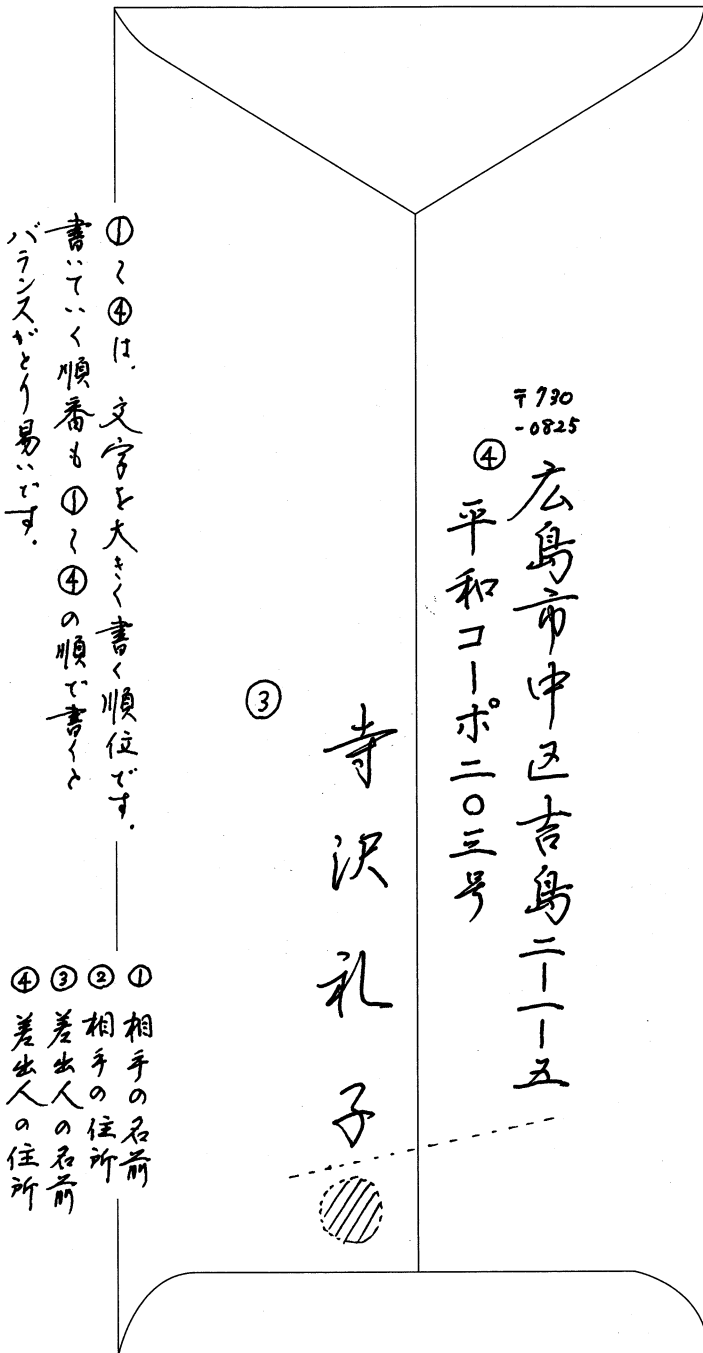 〒730
-0825
広島市中区吉島二ー一ー五
④
平和コーポ二〇三号
③
寺沢礼子
①〜④は、文字を大きく書く順位です。
書いていく順番も①〜④の順で書くと
バランスがとり易いです。
① 相手の名前
② 相手の住所
③ 差出人の名前
④ 差出人の住所